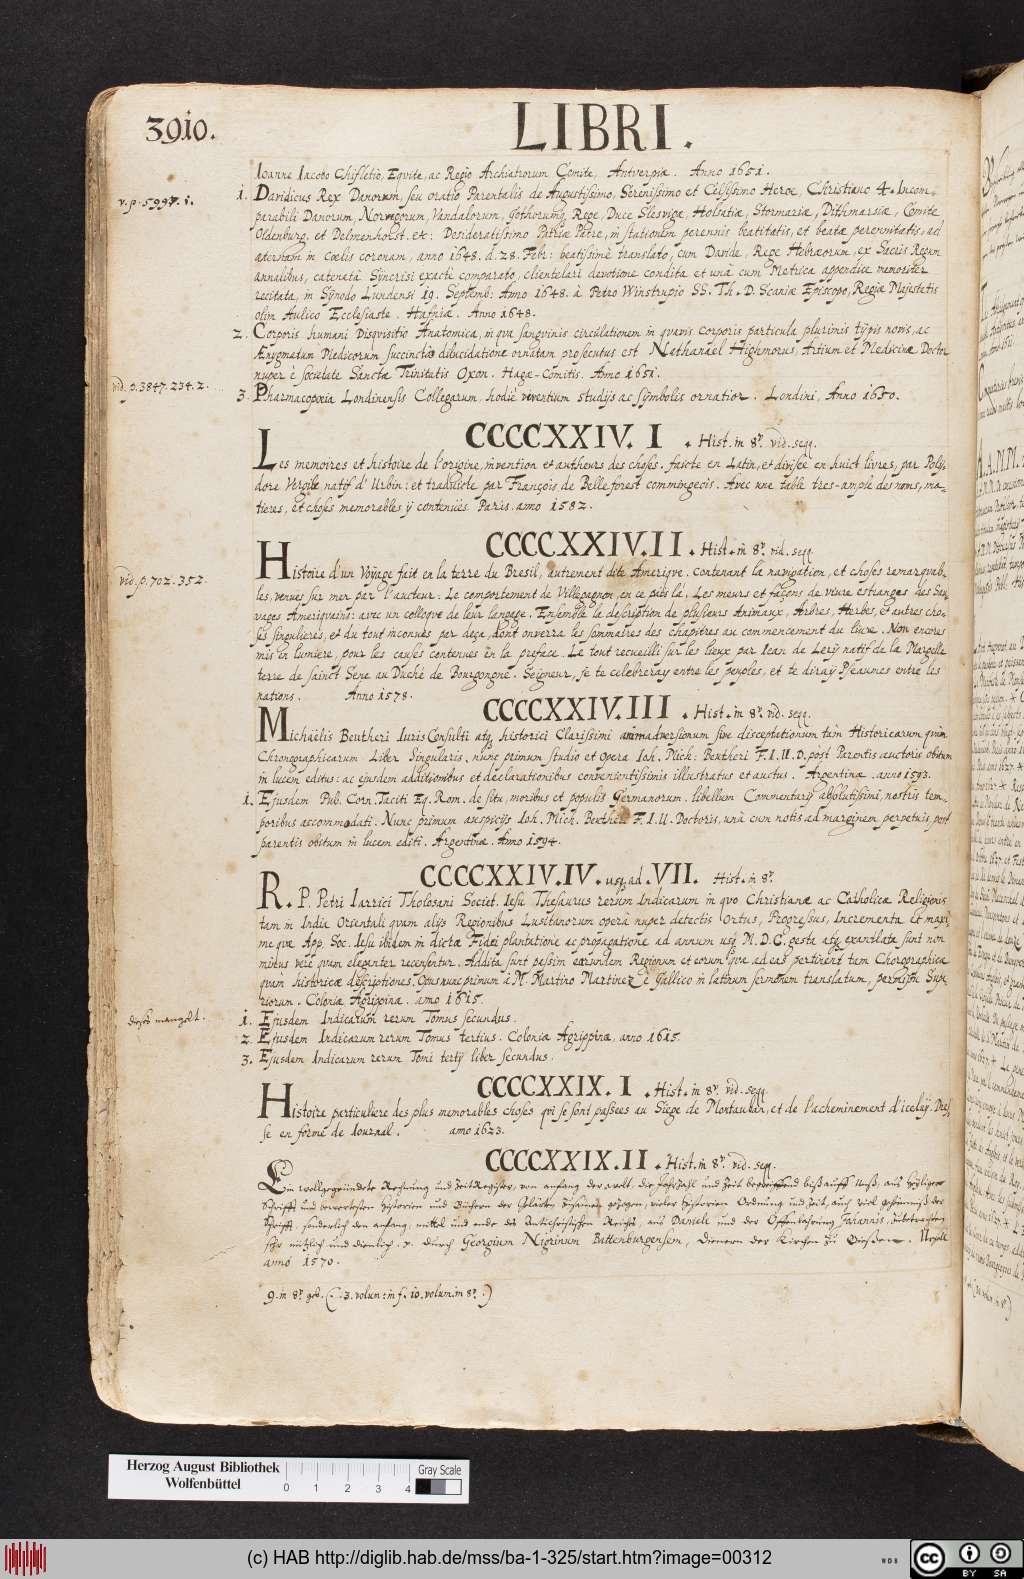 3910.
LIBRI.
Ioanne Iacobo Chifletio, Equite, ac Regio Archiatrorum Comite, Antverpiæ. Anno 1651.
v. p. 5997. 1.
1. Davidicus Rex Danorum, seu oratio Parentalis de Augustissimo, Serenissimo et Celsissimo Heroe, Christiano 4. Incom-
parabili Danorum, Norwegorum, Vandalorum, Gothorumq Rege, Duce Slesvigæ, Holsatiæ, Stormariæ, Dithmarsiæ, Comite
Oldenburg. et Delmenhorst. etc: Desideratissimo Patriæ Patre, in stationem perennis beatitatis, et beatæ perennitatis, ad
æternam in Cœlis coronam, anno 1648. d. 28. Febr: beatissimè translato, cum Davide, Rege Hebræorum, ex Sacris Regum
annalibus, catenatâ Syncrisi exacte comparato, clientelari devotione condita et unâ cum Metrica appendice memoriter
recitata, in Synodo Lundensi 19. Septemb: Anno 1648. à Petro Winstrupio SS. Th. D. Scaniæ Episcopo, Regiæ Majestatis
olim Aulico Ecclesiaste. Hafniæ. Anno 1648.
2. Corporis humani Disquisitio Anatomica, in qua sanguinis circulationem in quavis corporis particula plurimis typis novis, ac
Ænygmatum Medicorum succinctâ dilucidatione ornatam prosecutus est Nathanael Highmorus, Artium et Medicinæ Doctor
nuper è societate Sanctæ Trinitatis Oxon. Hagæ-Comitis. Anno 1651.
vid. p. 3847. 234. 2.
3. Pharmacopœia Londinensis Collegarum hodiè viventium studijs ac symbolis ornatior. Londini, Anno 1650.
CCCCXXIV. I . Hist. in 8º. vid. seqq.
Les memoires et histoire de l'origine, invention et autheurs des choses. faicte en Latin, et divisée en huict livres, par Poly-
dore Vergile natif d'Urbin: et traduicte par François de Belleforest commingeois. Avec une table tres-ample des noms, ma-
tieres, et choses memorables y contenües Paris. anno 1582.
CCCCXXIV. II . Hist. in 8º. vid. seqq.
vid. p. 702. 352.
Histoire d'un Voyage fait en la terre du Bresil, autrement dite Amerique. Contenant la navigation, et choses remarquab-
les, venues sur mer par l'aucteur: Le comportement de Villegagnon, en ce païs la. Les meurs et façons de vivre estranges des Sau-
vages Ameriquains: avec un colloque de leur langage. Ensemble la description de plusieurs Animaux, Arbres, Herbes, et autres cho-
ses singulieres, et du tout inconues par deça, dont on verra les sommaires des chapitres au commencement du livre. Non encores
mis en lumiere, pour les causes contenues en la preface. Le tout recueilli sur les lieux par Iean de Lery natif de la Margelle
terre de sainct Sene au Duché de Bourgongne. Seigneur, je te celebreray entre les peuples, et te diray Pseaumes entre les
nations. Anno 1578.
CCCCXXIV. III . Hist. in 8º. vid. seqq.
Michaëlis Beutheri IurisConsulti atq historici Clarissimi animadversionum sive disceptationum tàm Historicarum quàm
Chronographicarum Liber Singularis, nunc primum studio et opera Ioh. Mich: Beutheri F. I. U. D. post Parentis auctoris obitum
in lucem editus: ac ejusdem additionibus et declarationibus convenientissimis illustratus et auctus. Argentinæ. anno 1593.
1. Ejusdem Pub. Corn. Taciti Eq. Rom. de situ, moribus et populis Germanorum. libellum Commentarij absolutissimi, nostris tem-
poribus accommodati. Nunc primum auspicijs Ioh. Mich. Beutheri F. I. U. Doctoris, unâ cum notis ad marginem perpetuis, post
parentis obitum in lucem editi. Argentinæ. Anno 1594.
CCCCXXIV. IV. usq ad . VII. Hist. in 8º.
R. P. Petri Iarrici Tholosani Societ. Iesu Thesaurus rerum Indicarum in quo Christianæ ac Catholicæ Religionis
tam in India Orientali quam alijs Regionibus Lusitanorum operâ nuper detectis Ortus, Progressus, Incrementa et maxi-
me quæ App. Soc. Iesu ibidem in dictæ Fidei plantatione ac propagatione ad annum usq M. D. C. gesta atq exantlata sunt non
minus verè quam eleganter recensentur. Addita sunt passim earundem Regionum et eorum quæ ad eas pertinent tam Chorographicæ
quam historicæ descriptiones. Opus nunc primum à M. Martino Martinez è Gallico in latinum sermonem translatum, permissu Supe-
riorum. Coloniæ Agrippinæ. anno 1615.
dieses mangelt.
1. Ejusdem Indicarum rerum Tomus secundus.
2. Ejusdem Indicarum rerum Tomus tertius. Coloniæ Agrippinæ, anno 1615.
3. Ejusdem Indicarum rerum Tomi tertij liber secundus.
CCCCXXIX. I . Hist. in 8º. vid. seqq.
Histoire particuliere des plus memorables choses qui se sont passees au Siege de Montauban, et de l'acheminement d'iceluy. Dres-
se en forme de Iournal. anno 1623.
CCCCXXIX. II . Hist. in 8º. vid. seqq.
Ein wollgegründete Rechnung und Zeit Register, von anfang der welt, die Jahrzahl und Zeit begreiffend biß auff uns, aus heyliger
Schrifft und bewertesten Historien und Büchern der Gelärten zusamen gezogen, vieler Historien Ordnung und Zeit, auch viel geheimniß der
Schrifft, sonderlich den anfang, mittel und ende des Antichristischen Reichs, aus Daniele und der Offenbahrung Johannis, zubetrachten
sehr nützlich und dienlich. durch Georgium Nigrinum Battenburgensem, Dienern der Kirchen zu Giessen. Ursell
anno 1570.
9. in 8º. geb. (. 3. volum: in f. 10. volum. in 8º.)
Herzog August Bibliothek
Wolfenbüttel
0 1 2 3 4
Gray Scale
(c) HAB http://diglib.hab.de/mss/ba-1-325/start.htm?image=00312
WDB
cc BY SA